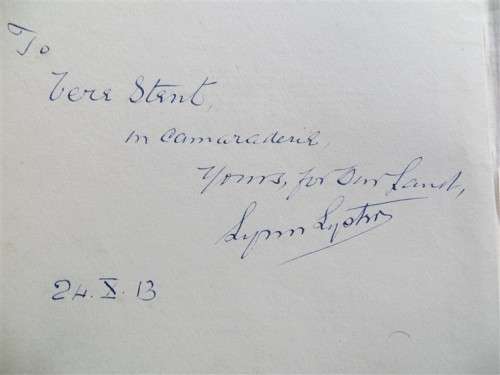 To
Vere Stent,
in camaraderie,
Yours, for Our Land,
Lynn Lyster
24. X. 13